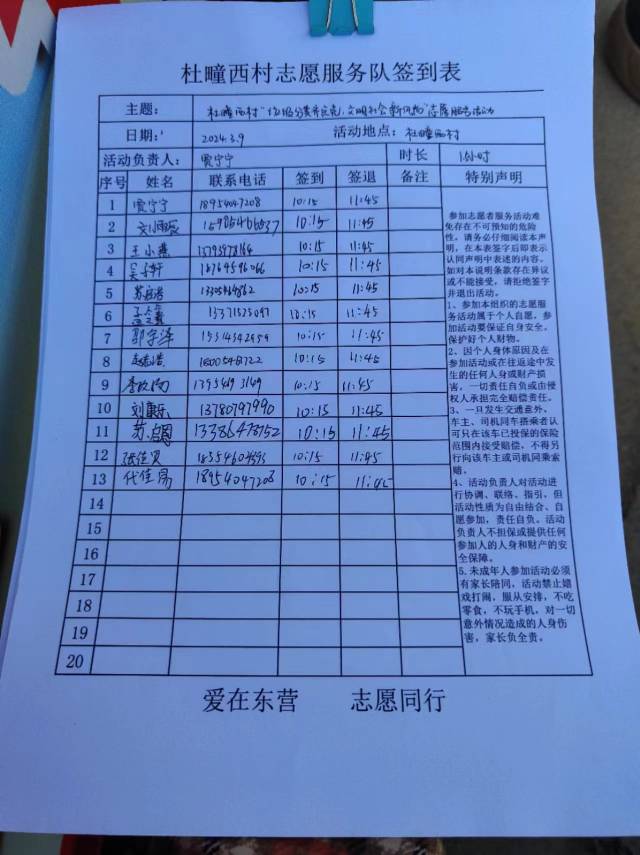 杜疃西村志愿服务队签到表
主题： 杜疃西村"垃圾分类齐点亮，文明社会新风尚"志愿服务活动
日期： 2024.3.9 活动地点： 杜疃西村
活动负责人： 贾宁宁 时长 1小时
序号 姓名 联系电话 签到 签退 备注 特别声明
1 贾宁宁 18954047208 10:15 11:45
2 10:15 11:45
3 王小燕 10:15 11:45
4 吴子轩 10:15 11:45
5 10:15 11:45
6 10:15 11:45
7 郭宇泽 10:15 11:45
8 10:15 11:45
9 10:15 11:45
10 刘康乐 13780797990 10:15 11:45
11 苏启恩 13386478752 10:15 11:45
12 张佳昊 10:15 11:45
13 代佳易 18954047208 10:15 11:45
14
15
16
17
18
19
20
参加志愿者服务活动难
免存在不可预知的危险
性，请务必仔细阅读本声
明，在本表签字后即表示
认同声明中表述的内容。
如对本说明条款存在异议
或不能接受，请拒绝签字
并退出活动。
1、参加本组织的志愿服
务活动属于个人自愿，参
加活动要保证自身安全，
保护好个人财物。
2、因个人身体原因及在
参加活动或在往返途中发
生的任何人身或财产损
害，一切责任自负或由侵
权人承担完全赔偿责任。
3、一旦发生交通意外，
车主、司机同车搭乘者认
可只在该车已投保的保险
范围内接受赔偿，不得另
行向该车主或司机同乘索
赔。
4、活动负责人对活动进
行协调、联络、指引，但
活动性质为自由结合、自
愿参加，责任自负。活动
负责人不担保或提供任何
参加人的人身和财产的安
全保障。
5、未成年人参加活动必须
有家长陪同，活动禁止嬉
戏打闹，服从安排，不吃
零食，不玩手机，对一切
意外情况造成的人身伤
害，家长负全责。
爱在东营 志愿同行